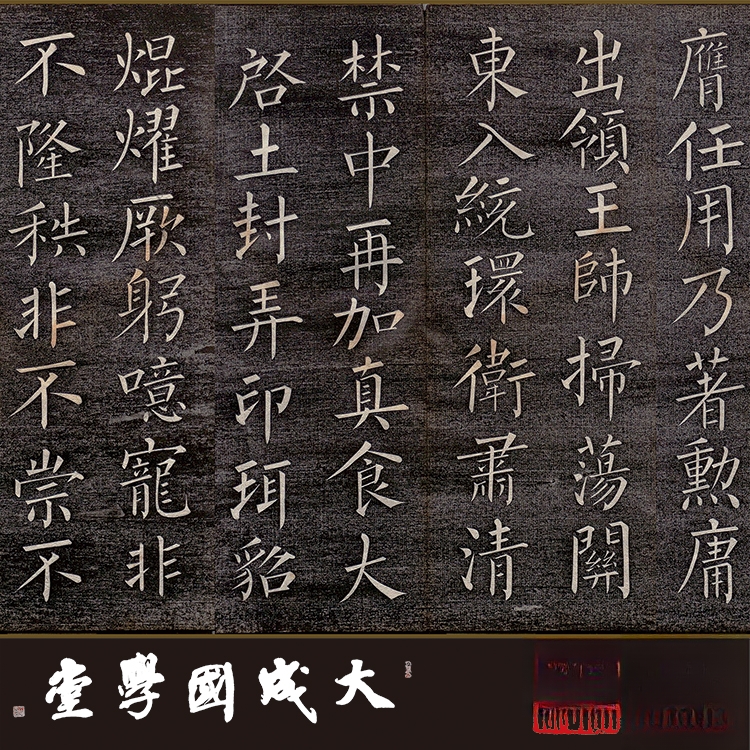 膺任用乃著勲庸
出領王師掃蕩關
東入統環衛肅清
禁中再加真食大
啓土封弄印珥貂
焜燿厥躬噫寵非
不隆秩非不崇不
大成國學堂